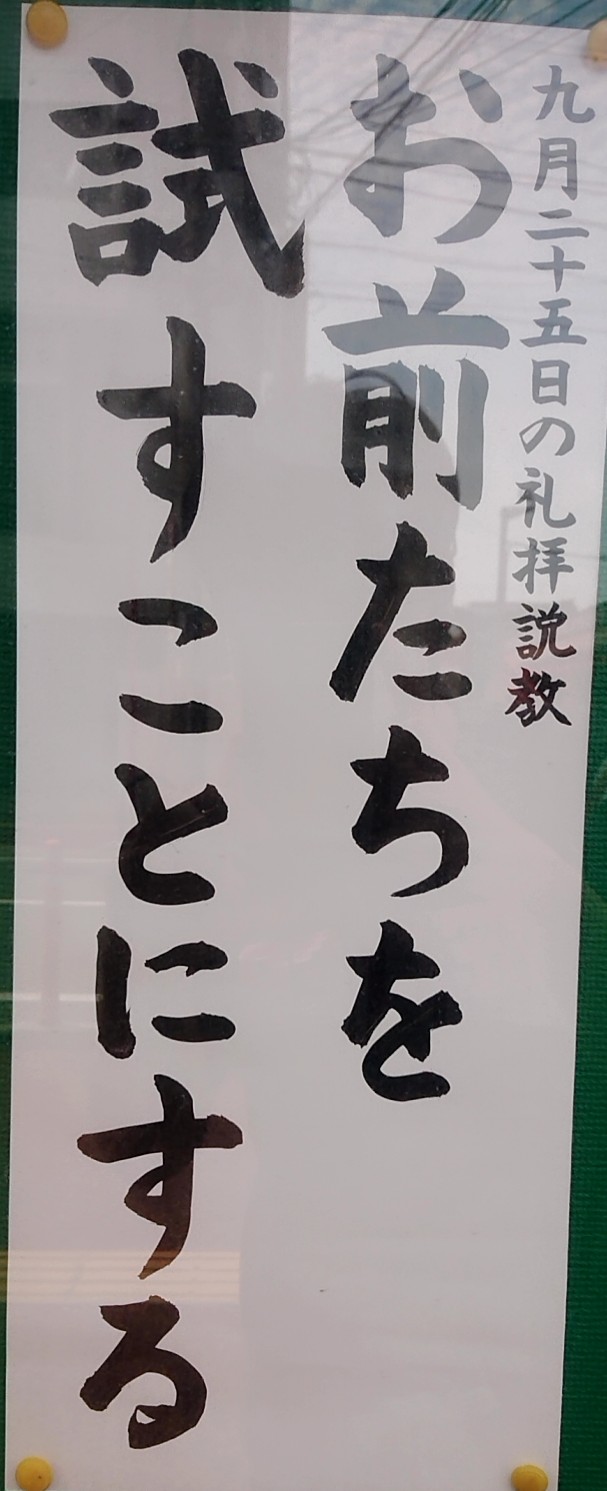 九月二十五日の礼拝説教
お前たちを
試すことにする